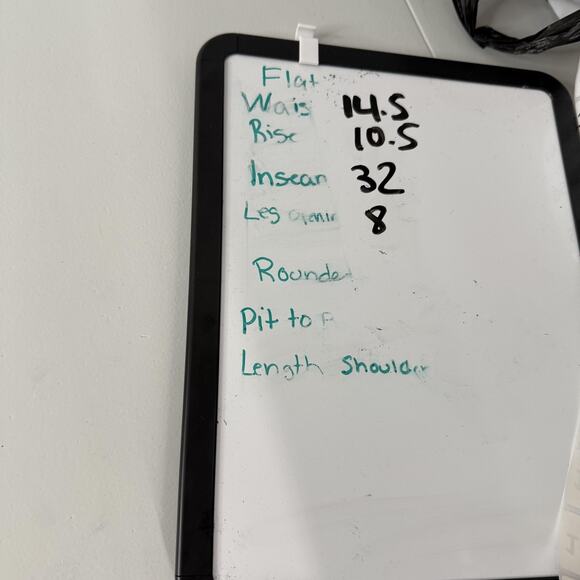 Flat
Wais 14.5
Rise 10.5
Inseam 32
Leg openin 8
Rounded
Pit to P
Length Shoulder